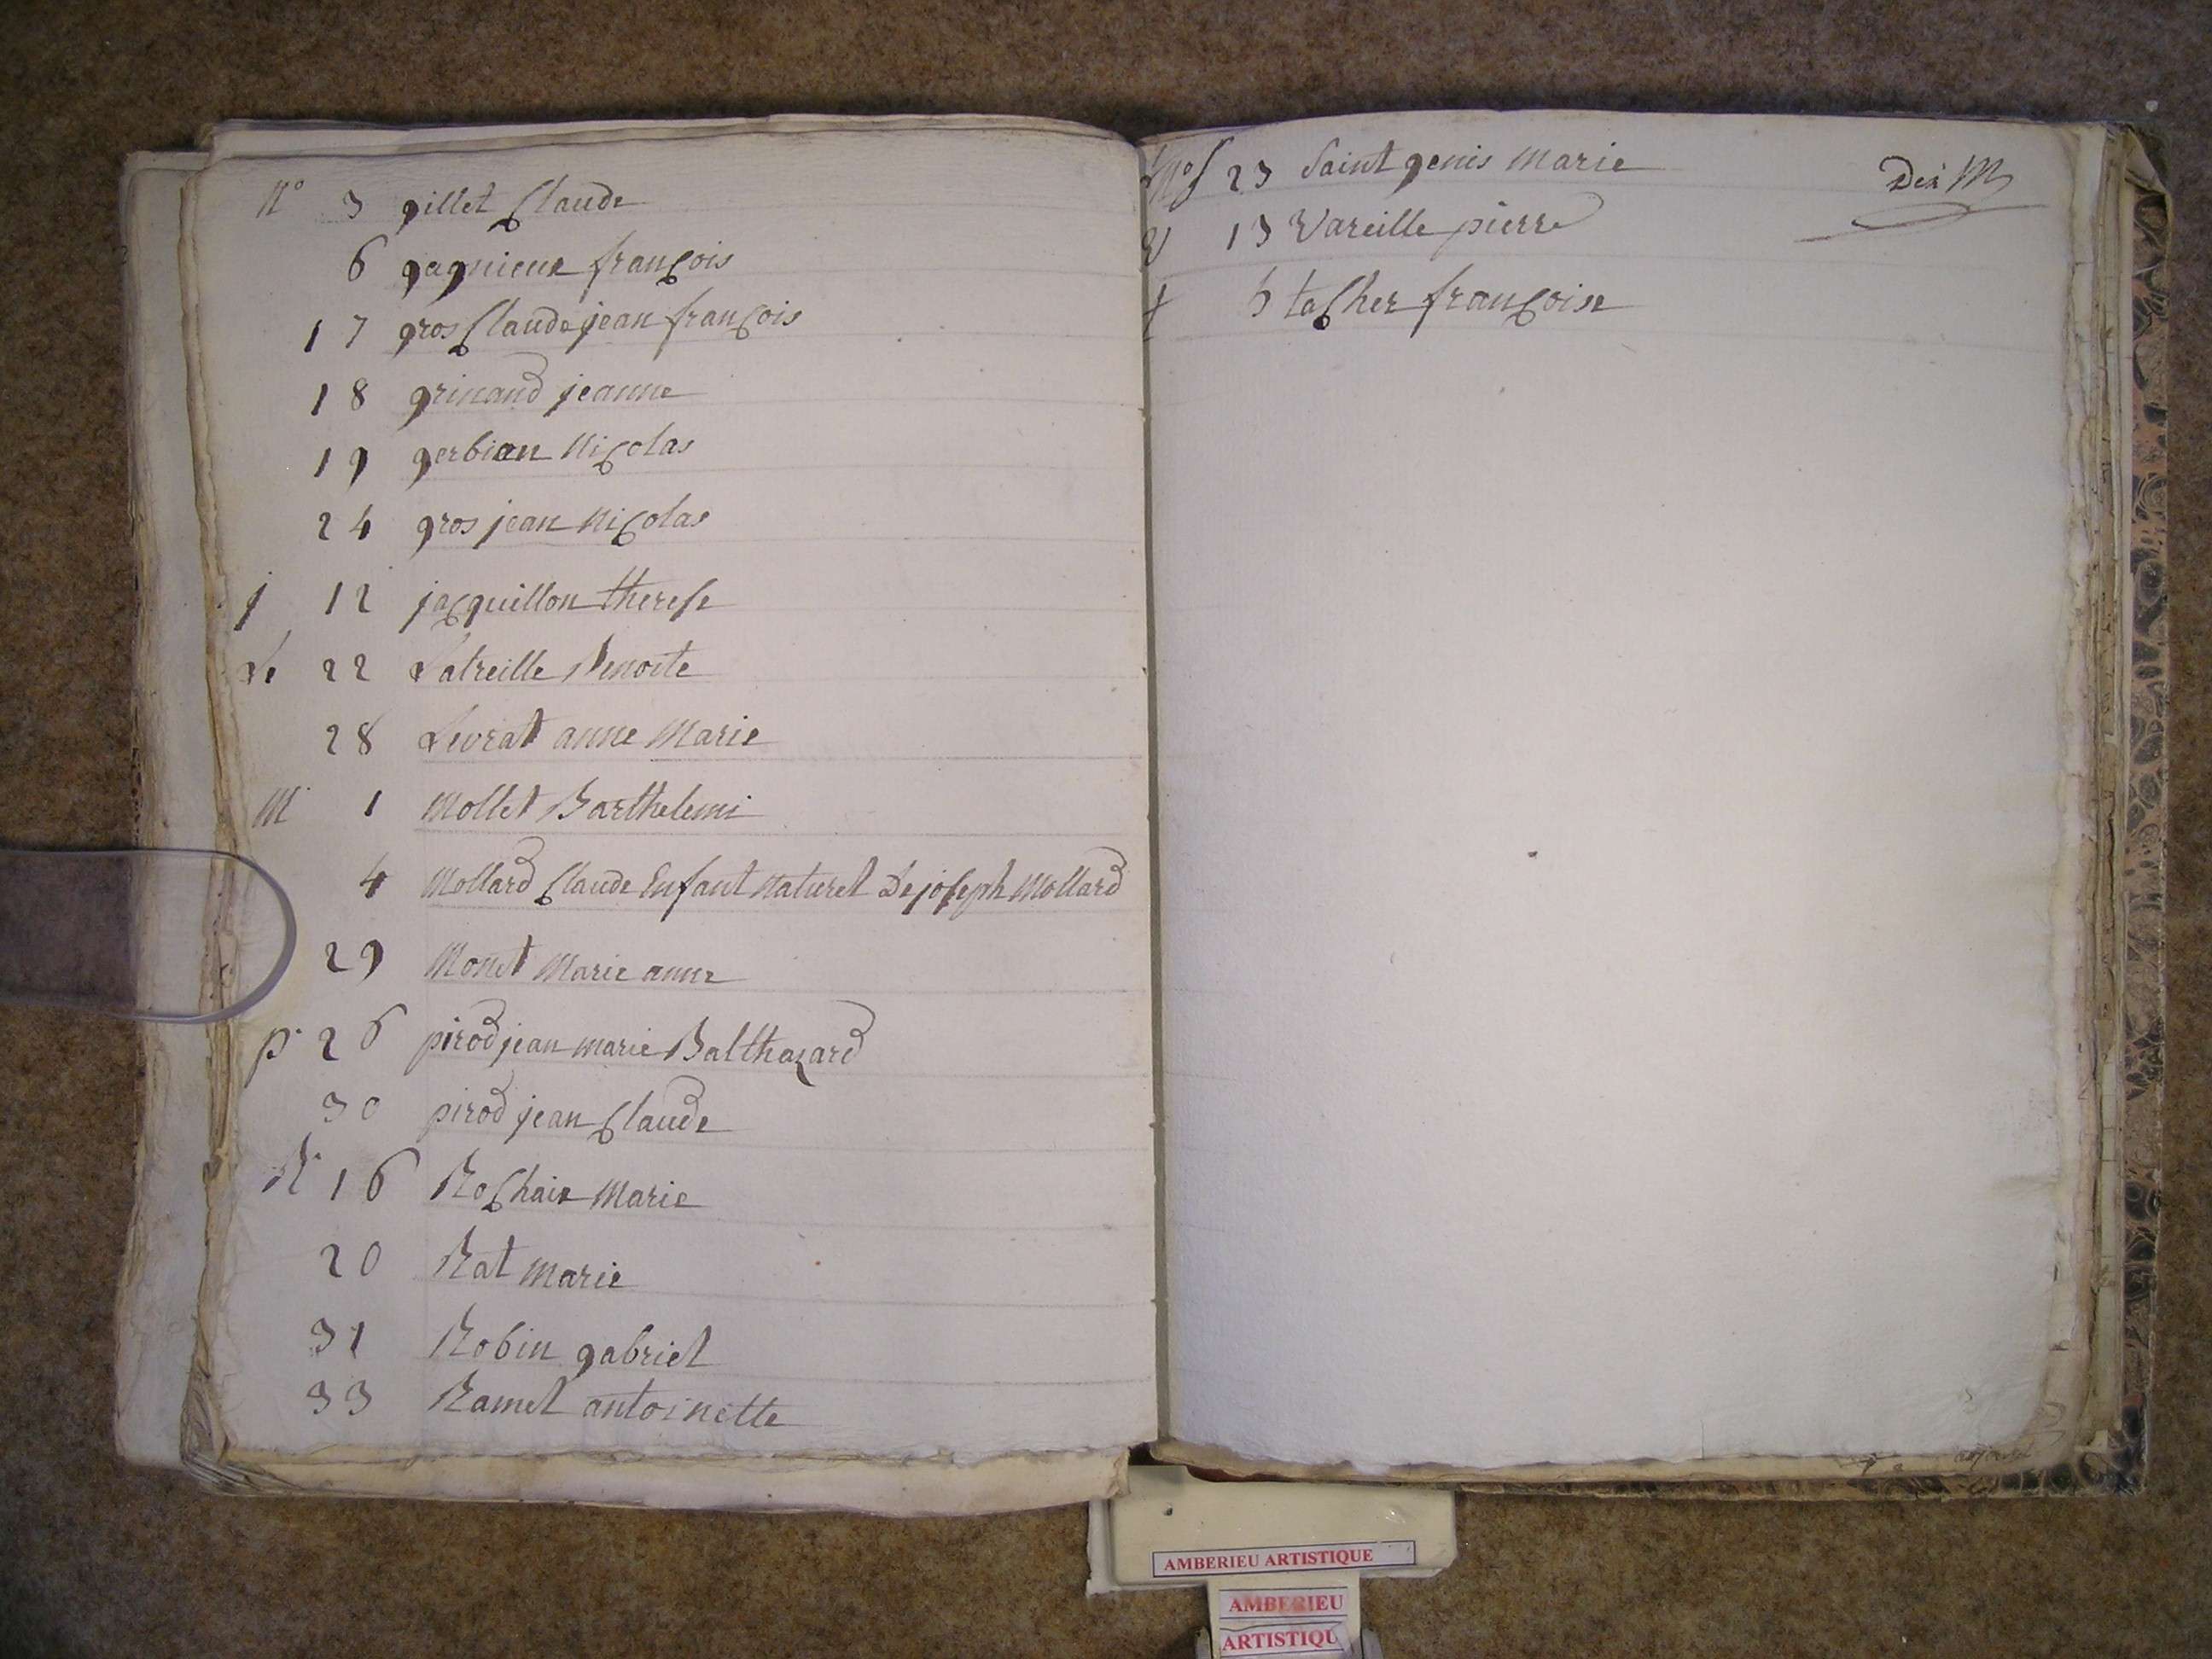 N° 3 gillet Claude
6 gagnieue françois
17 gros Claude jean françois
18 grinand jeanne
19 gerbian Nicolas
24 gros jean Nicolas
j 12 jacquillon therese
Le 22 Latreille Benoite
28 Levrat anne Marie
M 1 Mollet Barthelemi
4 Mollard Claude Enfant naturel De joseph Mollard
29 Monet Marie anne
p. 26 pirod jean marie Balthazard
30 pirod jean Claude
R. 16 Rochair Marie
20 Rat marie
31 Robin gabriel
33 Ramel antoinette
N° S 23 Saint genis Marie
V 13 Vareille pierre
t 5 tacher françoise
AMBERIEU ARTISTIQUE
AMBERIEU
ARTISTIQU